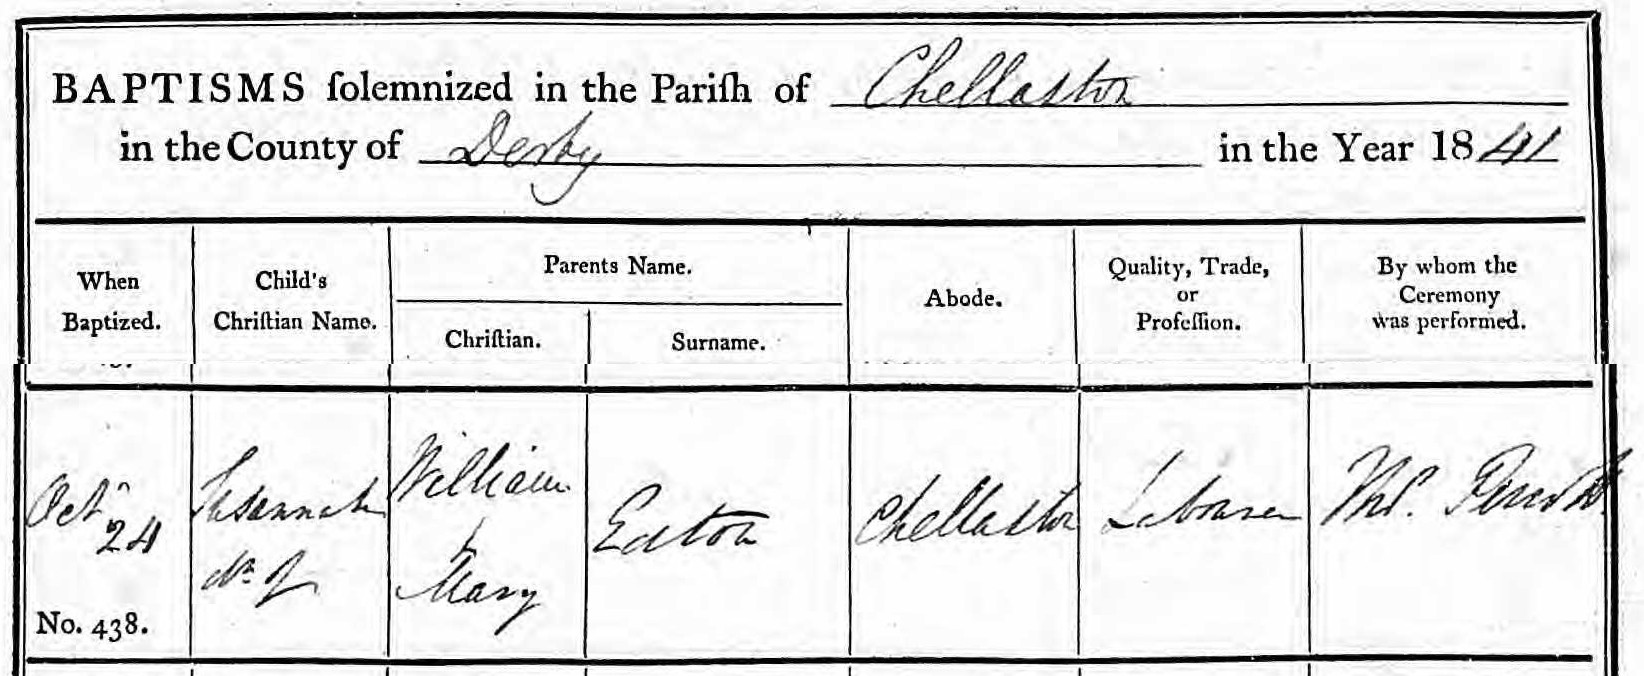 BAPTISMS ſolemnized in the Pariſh of Chellaston
in the County of Derby in the Year 1841
When
Baptized.
Child's
Chriſtian Name.
Parents Name.
Chriſtian.
Surname.
Abode.
Quality, Trade,
or
Profeſſion.
By whom the
Ceremony
was performed.
Octr
24
No. 438.
Susannah
dr. of
William
&
Mary
Eaton
Chellaston
Labourer
Thos.